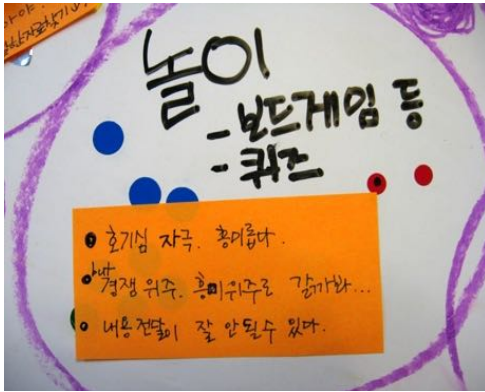 놀이
- 보드게임 등
- 퀴즈
호기심 자극. 흥미롭다.
경쟁위주. 흥미위주로 갈까봐...
내용전달이 잘 안될수 있다.